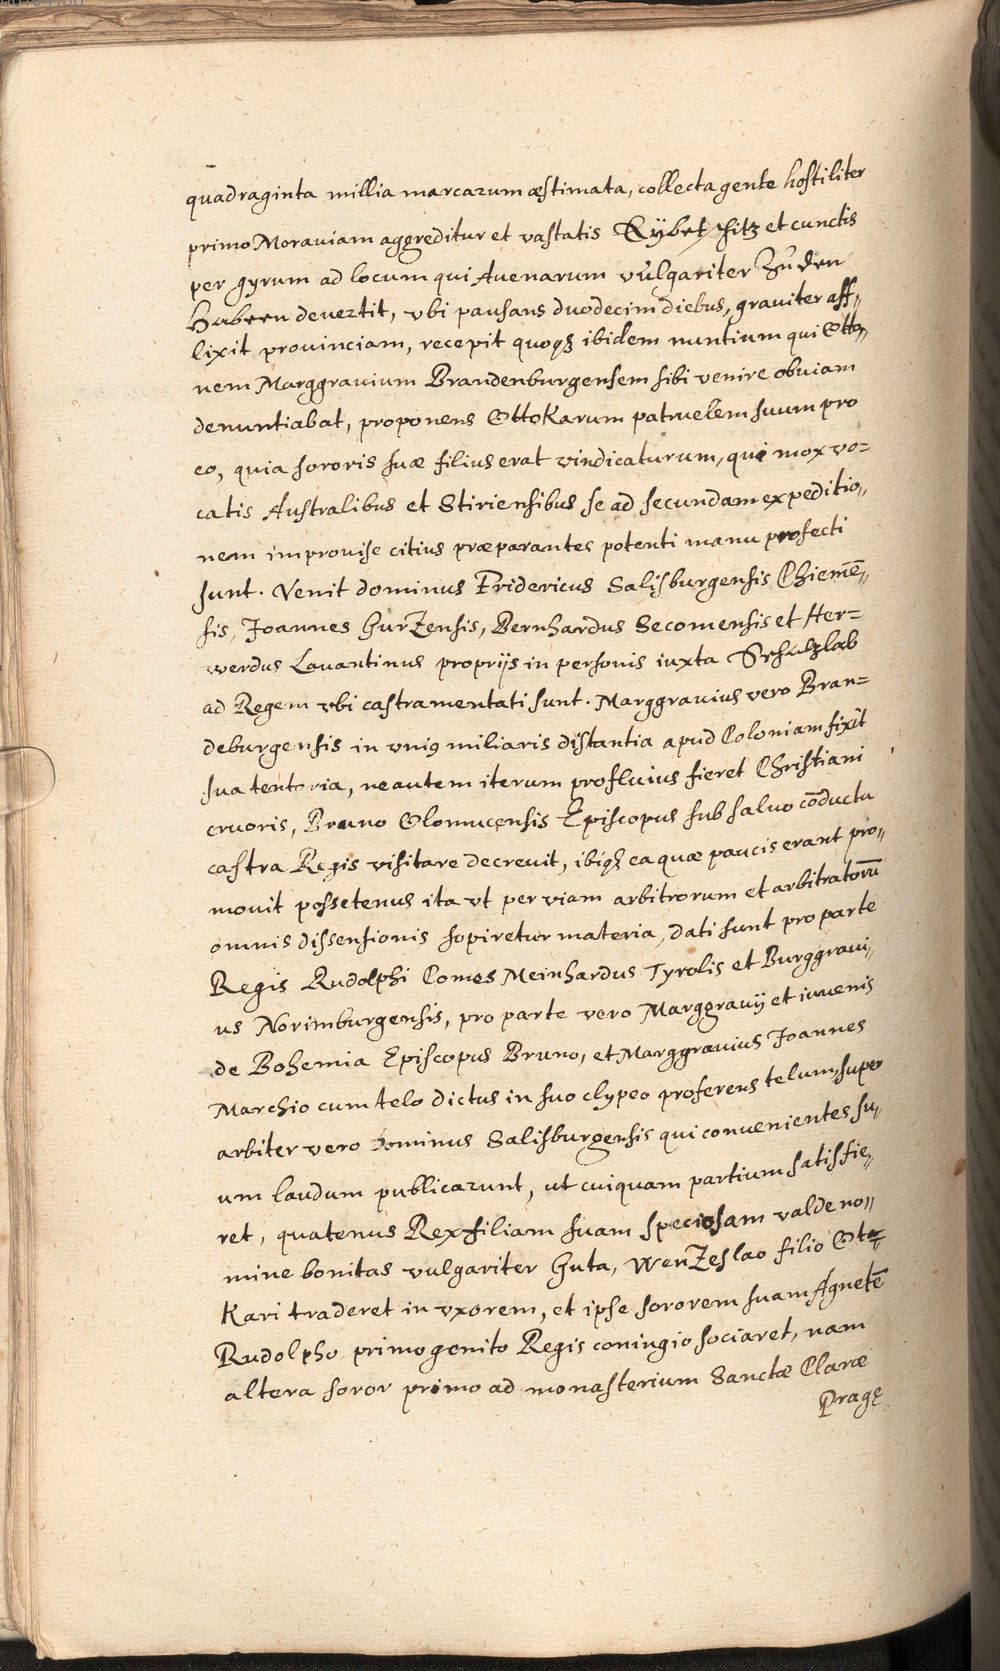 quadraginta millia marcarum æstimata, collecta gente hostiliter
primo Morauiam aggreditur et vastatis Eÿbetschitz et cunctis
per gyrum ad locum qui Auenarum vulgariter Zu den
Habern deuertit, vbi pausans duodecim diebus, grauiter aff„
lixit prouinciam, recepit quoqȝ ibidem nuntium qui Otto„
nem Marggrauium Brandenburgensem sibi venire obuiam
denuntiabat, proponens Ottokarum patruelem suum pro
eo, quia sororis suæ filius erat vindicaturum, qui mox vo=
catis Australibus et Stiriensibus se ad secundam expeditio„
nem improuise citius præparantes potenti manu profecti
sunt. Venit dominus Fridericus Salisburgensis Chiemē„
sis, Joannes Gurzensis, Bernhardus Secomensis et Her=
werdus Lauantinus proprijs in personis iuxta Schalzlab
ad Regem vbi castramentati sunt. Marggrauius vero Bran=
deburgensis in vnig miliaris distantia apud Coloniam fixit
sua tentoria, ne autem iterum profluuius fieret Christiani
cruoris, Bruno Olomucensis Episcopus sub saluo cōductu
castra Regis visitare decreuit, ibiqȝ ea quæ pacis erant pro„
mouit possetenus ita vt per viam arbitrorum et arbitratorū
omnis dissensionis sopiretur materia, dati sunt pro parte
Regis Rudolphi Comes Meinhardus Tyrolis et Burggraui„
us Norimburgensis, pro parte vero Marggrauij et iuuenis
de Bohemia Episcopus Bruno, et Marggrauius Joannes
Marchio cum telo dictus in suo clypeo proferens telum, super
arbiter vero dominus Salisburgensis qui conuenientes su„
um laudum publicarunt, ut cuiquam partium satisfie„
ret, quatenus Rex filiam suam speciosam valde no„
mine bonitas vulgariter Guta, Wenzeslao filio Oto„
kari traderet in vxorem, et ipse sororem suam Agnetē
Rudolpho primogenito Regis coniugio sociaret, nam
altera soror primo ad monasterium Sanctæ Claræ
Pragę